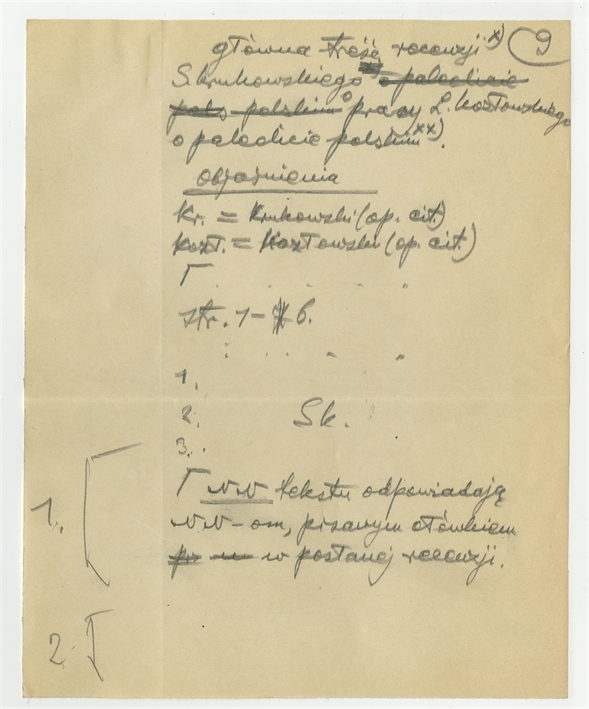 główna treść recenzji x) 9
S. Krukowskiego o paleolicie
pols polskim o pracy L. Kozłowskiego
o paleolicie polskim xx).
objaśnienia
Kr. = Krukowski (op. cit.)
Kozł. = Kozłowski (op. cit.)
Γ . . . .
str. 1 - 6.
1.
2. Sk.
3.
Γ NN tekstu odpowiadają
1. NN-om, pisanym ołówkiem
w posłanej recenzji.
2.